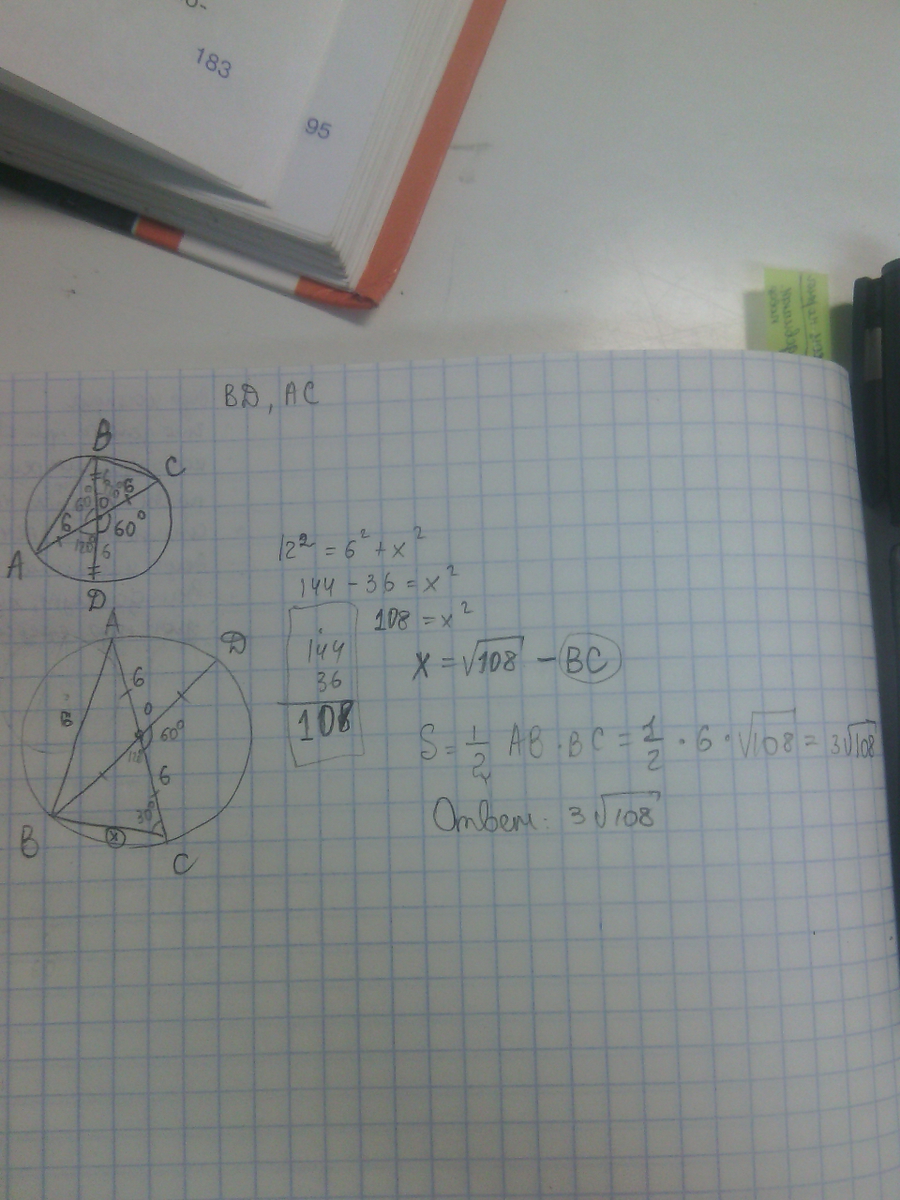 183
95
BD, AC
B
C
6
6
60°
O
x
6
60°
120°
6
A
D
A
D
6
O
6
60°
120°
6
30°
B
x
C
12² = 6² + x²
144 - 36 = x²
108 = x²
144
36
108
x = √108 - BC
S = 1/2 AB · BC = 1/2 · 6 · √108 = 3√108
Ответ: 3√108